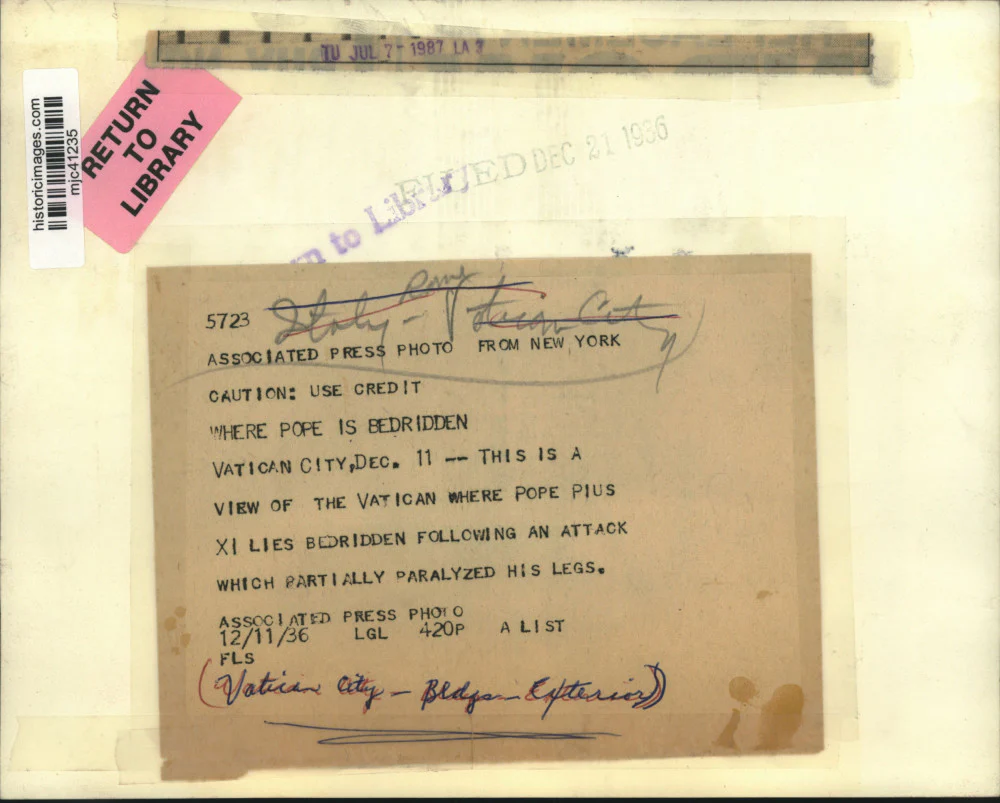 TU JUL 7 - 1987 LA
historicimages.com
mjc41235
RETURN
TO
LIBRARY
FILED DEC 21 1936
to Library
Italy - Rome Vatican City
5723
ASSOCIATED PRESS PHOTO FROM NEW YORK
CAUTION: USE CREDIT
WHERE POPE IS BEDRIDDEN
VATICAN CITY, DEC. 11 -- THIS IS A
VIEW OF THE VATICAN WHERE POPE PIUS
XI LIES BEDRIDDEN FOLLOWING AN ATTACK
WHICH PARTIALLY PARALYZED HIS LEGS.
ASSOCIATED PRESS PHOTO
12/11/36 LGL 420P A LIST
FLS
(Vatican City - Bldgs - Exterior)